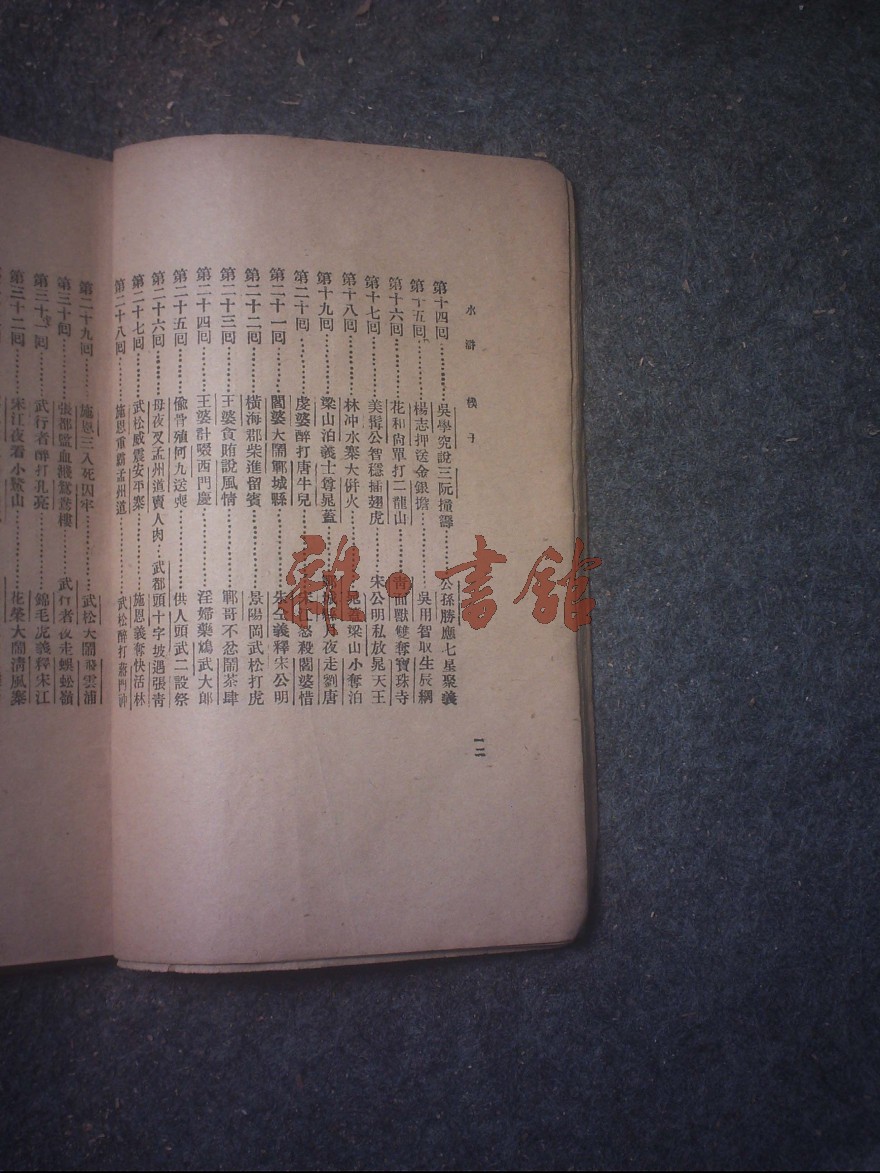 水滸楔子
第十四回………吳學究說三阮撞籌………公孫勝應七星聚義
第十五回………楊志押送金銀擔………吳用智取生辰綱
第十六回………花和尚單打二龍山………青面獸雙奪寶珠寺
第十七回………美髯公智穩插翅虎………宋公明私放晁天王
第十八回………林冲水寨大併火………晁蓋梁山小奪泊
第十九回………梁山泊義士尊晁蓋………鄆城縣月夜走劉唐
第二十回………虔婆醉打唐牛兒………宋江怒殺閻婆惜
第二十一回………閻婆大鬧鄆城縣………朱仝義釋宋公明
第二十二回………橫海郡柴進留賓………景陽岡武松打虎
第二十三回………王婆貪賄說風情………鄆哥不忿鬧茶肆
第二十四回………王婆計啜西門慶………淫婦藥鴆武大郎
第二十五回………偷骨殖何九送喪………供人頭武二設祭
第二十六回………母夜叉孟州道賣人肉………武都頭十字坡遇張青
第二十七回………武松威震安平寨………施恩義奪快活林
第二十八回………施恩重霸孟州道………武松醉打蔣門神
一二
第二十九回………施恩三入死囚牢………武松大鬧飛雲浦
第三十回………張都監血濺鴛鴦樓………武行者夜走蜈蚣嶺
第三十一回………武行者醉打孔亮………錦毛虎義釋宋江
第三十二回………宋江夜看小鰲山………花榮大鬧清風寨
雜·書館